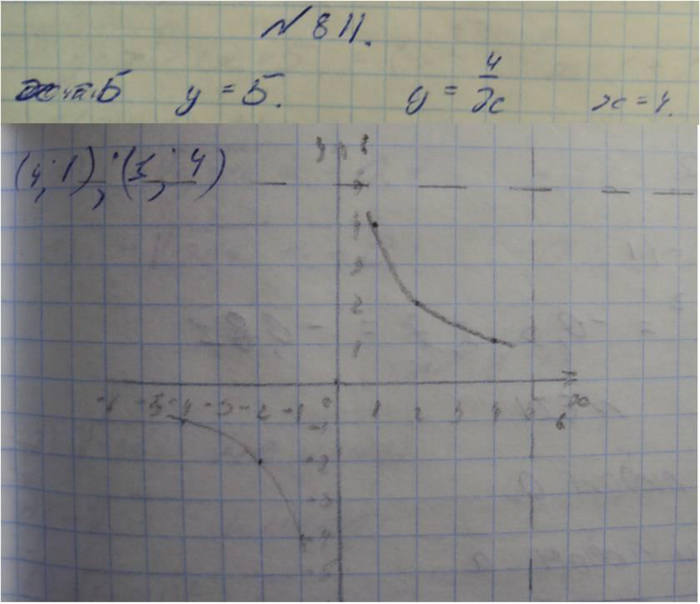 № 811.
y = 5. y = 4/x x = 4.
(4, 1), (1, 4)
y
5
4
3
2
1
-6 -5 -4 -3 -2 -1 0 1 2 3 4 5 6 x
-1
-2
-3
-4
-5